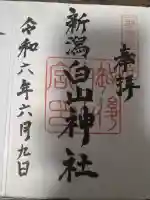 奉拝
新潟白山神社
令和六年六月九日